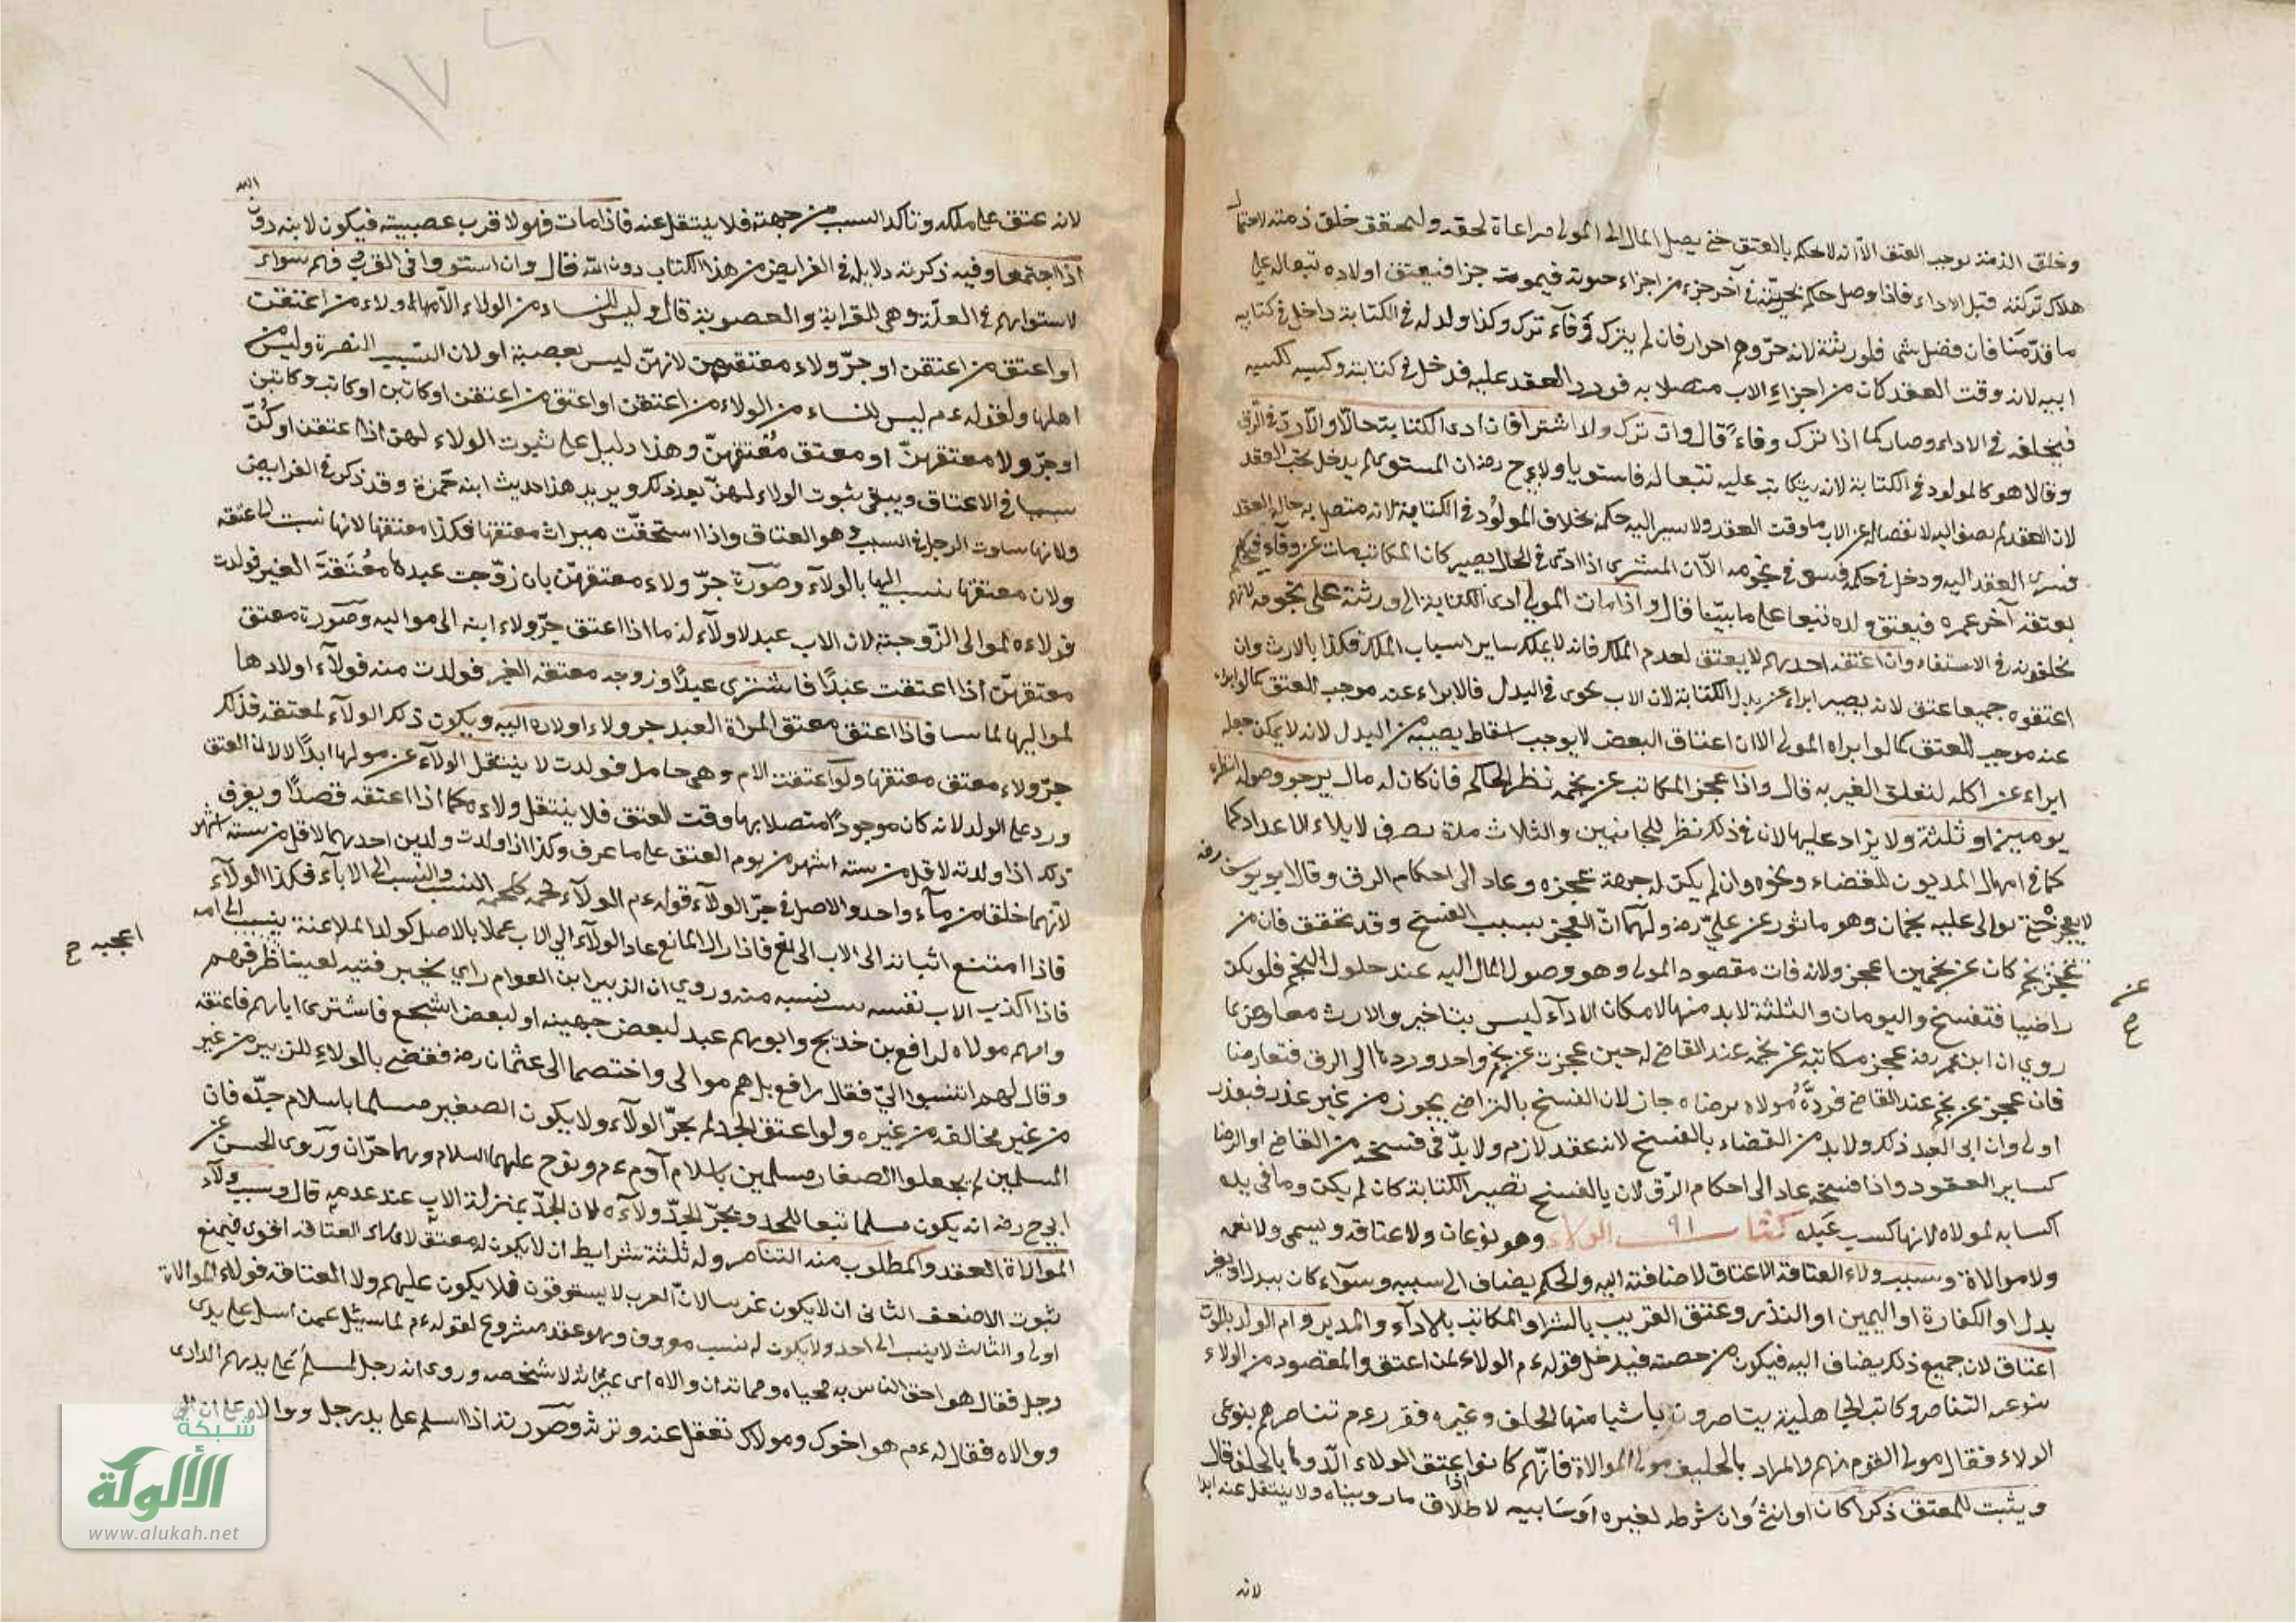 وخلو الذمة يوجب العتق الا انه لا يحكم بالعتق حتى يصل المال الى المولى مراعاة لحقه ولم يتحقق خلو ذمته لاحتمال
هلاك تركته قبل الاداء فاذا وصل حكم بحريته في آخر جزء من اجزاء حيوته فيموت حرا فيعتق اولاده تبعا له على
ما قدمنا فان فضل شئ فلورثته لانه حر وهم احرار فان لم يترك وفآء ترك وكذا ولد له في الكتابة داخل في كتابه
ابيه لانه وقت العقد كان من اجزاء الاب متصلا به فورد العقد عليه فدخل في كتابته وكسبه ككسبه
فيخلفه في الاداء وصار كما اذا ترك وفاء قال وان ترك ولدا اشتراه فان ادى الكتابة حالا والا رد في الرق
وقالا هو كالمولود في الكتابة لانه يتكاتب عليه تبعا له فاستويا ولابي ح رضه ان المشترى لم يدخل تحت العقد
لان العقد لم يضف اليه لانفصاله عن الاب وقت العقد ولا يسرى اليه حكمه بخلاف المولود في الكتابة لانه متصل به حالة العقد
فسرى العقد اليه ودخل في حكمه فيسعى في نجومه الا ان المشترى اذا ادى في الحال يصير كان المكاتب مات عن وفآء فيحكم
بعتقه آخر عمره فيعتق ولده تبعا على ما بينا قال واذا مات المولى ادى الكتابة الى ورثته على نجومه لانهم
يخلفونه في الاستيفاء وان اعتقه احدهم لا يعتق لعدم الملك فانه لا يملك بساير اسباب الملك فكذا بالارث وان
اعتقوه جميعا عتق لانه يصير ابراء عن بدل الكتابة لان الارث يجرى في البدل فالابراء عنه موجب للعتق كما لو ابراه
عنه موجب للعتق كما لو ابراه المولى الا ان اعتاق البعض لا يوجب اسقاط نصيبه من البدل لانه لا يمكن جعله
ابراء عن اكله لتعلق الغير به قال واذا عجز المكاتب عن نجمه نظر الحاكم فان كان له مال يرجو وصوله انظره
يومين او ثلثة ولا يزاد عليها لان في ذلك نظر للجانبين والثلاث مدة تصرف لابلاء الاعذار كما
كما في امهال المديون للقضاء ونحوه وان لم يكن له جهة عجزه وعاد الى احكام الرق وقال ابو يوسف رضه
لا يعجز حتى يتوالى عليه نجمان وهو ماثور عن علي رضه ولهما ان العجز سبب الفسخ وقد تحقق فان من
عجز عن نجم كان عن نجمين اعجز ولانه فات مقصود المولى وهو وصول المال اليه عند حلول النجم فلم يكن
عن
ح
راضيا فتفسخ واليومان والثلثة لا بد منها لامكان الادآء ليس بتاخير والارث معارض بما
روي ان ابن عمر رضه عجز مكاتبة عن نجمه عند القاضي له حين عجزت عن نجم واحد وردها الى الرق فتعارضا
فان عجز عن نجم عند القاضي فرده مولاه برضاه جاز لان الفسخ بالتراضي يجوز من غير عذر فبعذر
اولى وان ابى العبد ذلك ولا بد من القضاء بالفسخ لانه عقد لازم ولا بد في فسخه من القاضي او الرضا
كساير العقود واذا فسخه عاد الى احكام الرق لان بالفسخ تصير الكتابة كان لم يكن وما في يده
اكسابه لمولاه لانها كسب عبده كتاب ٩١ الولاء وهو نوعان ولاء عتاقه ويسمى ولا نعمه
ولا موالاة وسبب ولاء العتاقة الاعتاق لاضافته اليه والحكم يضاف الى سببه وسوآء كان ببدل او بغير
بدل او الكفارة او اليمين او النذر وعتق القريب بالشرا والمكاتب بالادآء والمدبر وام الولد بالموت
اعتاق لان جميع ذلك يضاف اليه فيكون من جهته فيدخل قوله ءم الولاء لمن اعتق والمقصود من الولاء
بنوعيه التناصر وكانت الجاهلية يتناصرون باشيا منها الحلف وغيره فقرر ءم تناصرهم بنوعى
الولاء فقال مولى القوم منهم والمراد بالحليف مولى الموالاة فانهم كانوا يعتق الولاء الدوما بالحلف قال
ويثبت للمعتق ذكرا كان او انثى وان شرطه لغيره او سايبه لاطلاق ما روينا ولا ينتقل عنه ابدا
اذا
لانه
لانه عتق على ملكه وتاكد السبب من جهته فلا ينتقل عنه فاذا مات فهو لاقرب عصبيته فيكون لابنه دون
ابيه
اذا اجتمعا وفيه ذكرته دلايله في الفرايض من هذا الكتاب دون الله قال وان استووا في القرب فهم سواء
لاستوايهم في العلة وهي القرابة والعصوبة قال وليس للنساء من الولاء الا ما اعتقن او ولاء من اعتقت
او اعتق من اعتقن او جر ولاء معتقهن لانهن ليس بعصبة او لان السبب النصرة وليس من
اهلها ولقوله ءم ليس للنساء من الولاء من اعتقن او اعتق من اعتقن او كاتبن او كاتب من كاتبن
او جر ولا معتقهن او معتق معتقهن وهذا دليل على ثبوت الولاء لهن اذا اعتقن او كن
سببا في الاعتاق ويبقى ثبوت الولاء لهن بعد ذلك ويريد هذا حديث ابنه حمزة وقد ذكر في الفرايض
ولانها ساوت الرجل في السبب وهو العتاق واذا استحقت ميراث معتقها فكذا معتقها لانها نسبت لما عتقه
ولان معتقها ينسب اليها بالولآء وصورة جر ولاء معتقهن بان زوجت عبدها معتقة الغير فولدت
فولاءه لموالى الزوجة لان الاب عبد لا ولآء له اما اذا اعتق جر ولاء ابنه الى مواليه وصورة معتق
معتقهن اذا اعتقت عبدا فاشترى عبدا وزوجه معتقه الغير فولدت منه فولآء اولادها
لمواليها لما بينا فاذا اعتق معتق المراة العبد جر ولاء اولاده اليه ويكون ذلك الولآء لمعتقه فذلك
جر ولاء معتق معتقها ولو اعتقت الام وهي حامل فولدت لا ينتقل الولآء عن مولها ابدا لان العتق
ورد على الولد لانه كان موجودا متصلا بها وقت العتق فلا ينتقل ولاءه كما اذا اعتقه قصدا ويعرف
ذلك اذا ولدته لاقل من ستة اشهر من يوم العتق على ما عرف وكذا اذا ولدت ولدين احدهما لاقل من ستة اشهر
لانهما خلقا من مآء واحد والاصل في جر الولآء قوله ءم الولآء لحمة كلحمة النسب والنسب الى الابآء فكذا الولآء
فاذا امتنع اثباته الى الاب لمانع فاذا زال المانع عاد الولآء الى الاب عملا بالاصل كولد الملاعنة ينسب الى امه
فاذا اكذب الاب نفسه ثبت نسبه منه وروي ان الزبير ابن العوام راي بخيبر فتيه لعيينا ظرفهم
اعجبه ح
وامهم مولاه لرافع بن خديج وابوهم عبد لبعض جهينه او لبعض اشجع فاشترى اباهم فاعتقه
وقال لهم انتسبوا الي فقال رافع بل هم موالى واختصما الى عثمان رضه فقضى بالولاء للزبير من غير
من غير مخالفه من غيره ولو اعتق الجد لم يجر الولآء ولا يكون الصغير مسلما باسلام جده فان
المسلمين لم يجعلوا الصغار مسلمين باسلام آدم ءم ونوح عليهما السلام وهما حران وروى الحسن عن
ابي ح رضه انه يكون مسلما تبعا للجد ويجر الجد ولآءه لان الجد بمنزلة الاب عند عدمه قال وسبب ولآء
الموالاة العقد والمطلوب منه التناصر وله ثلثة شرايط ان لا يكون له معتق لان ولاء العتاقه اقوى فيمنع
ثبوت الاضعف الثانى ان لا يكون عربيا لان العرب لا يسترقون فلا يكون عليهم ولا العتاقه فولاء الموالاة
اولى والثالث لا ينسب الى احد ولا يكون له نسب معروف وهو عقد مشروع لقوله ءم لما سئل عمن اسلم على يدى
رجل فقال هو احق الناس به محياه ومماته ان والاه اى ميراثه لا شخصه وروى انه رجل اسلم على يد تميم الدارى
ووالاه فقال له ءم هو اخوك ومولاك تعقل عنه وترثه وصورته اذا اسلم على يد رجل ووالاه على ان
شبكة
الألوكة
www.alukah.net